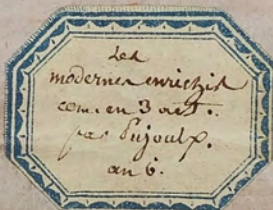 Les
modernes enrichis
com. en 3 act.
par Pujoulx.
an 6.